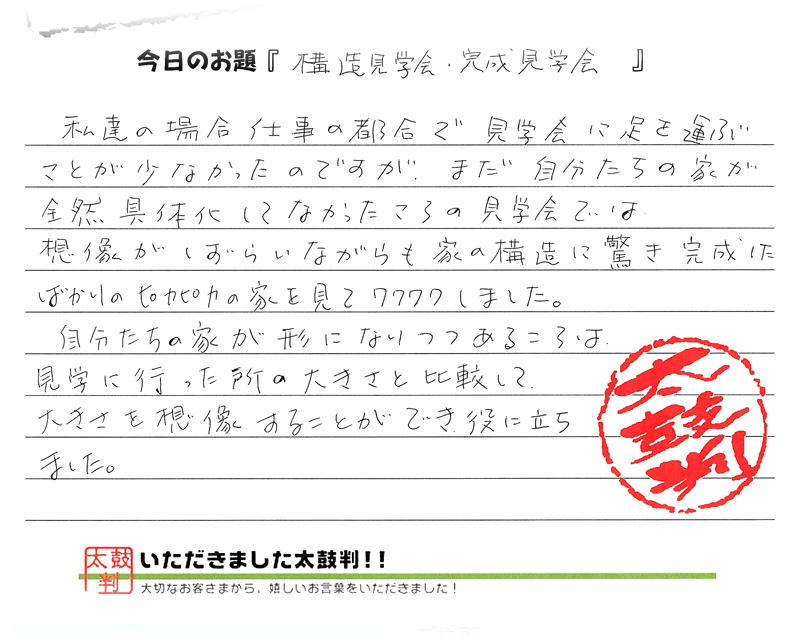 今日のお題『 構造見学会・完成見学会 』
私達の場合仕事の都合で見学会に足を運ぶ
ことが少なかったのですが、まだ自分たちの家が
全然具体化してなかったころの見学会では、
想像がしずらいながらも家の構造に驚き完成した
ばかりのピカピカの家を見てワクワクしました。
自分たちの家が形になりつつあるころは、
見学に行った所の大きさと比較して、
大きさを想像することができ、役に立ち
ました。
太鼓判
太鼓判
いただきました太鼓判!!
大切なお客さまから、嬉しいお言葉をいただきました!